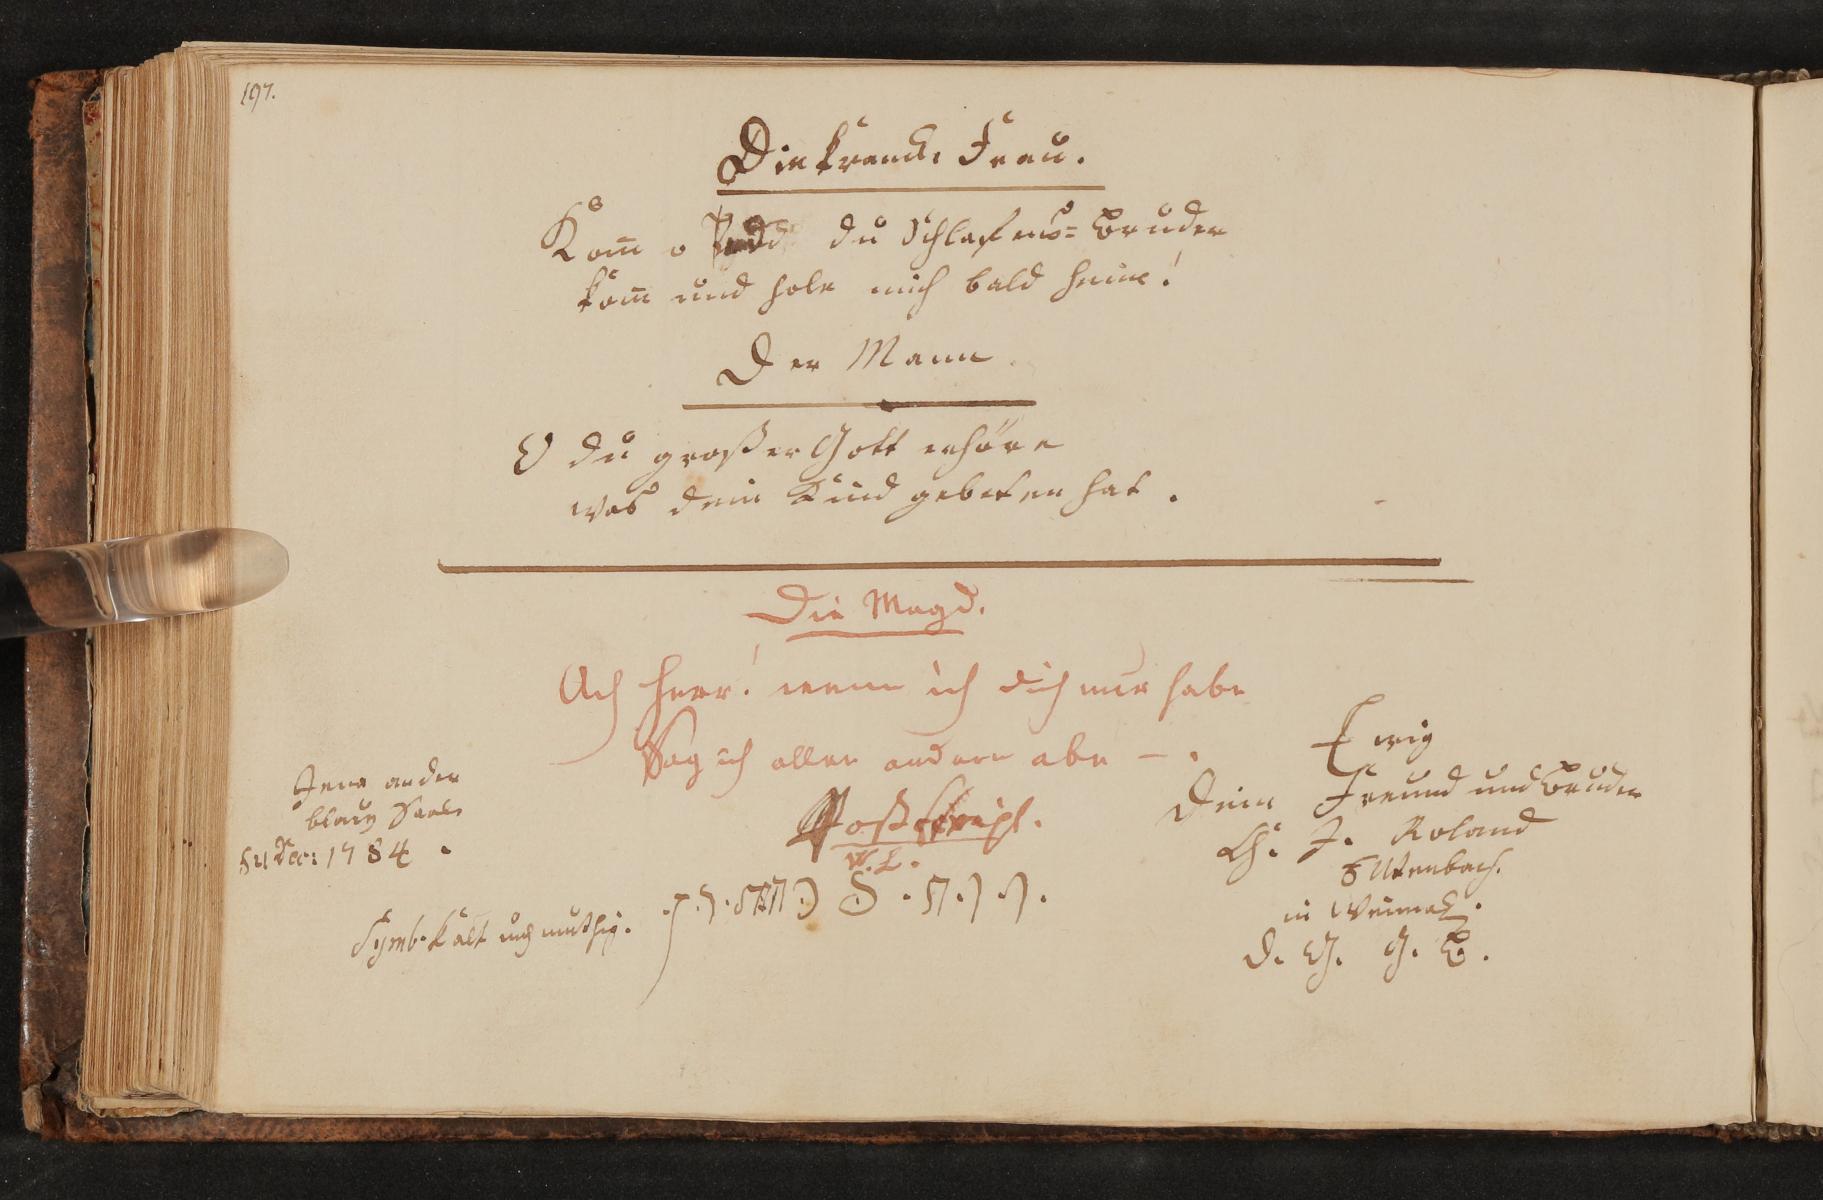 197.
Die krancke Frau.
Kom̅ o Todt du Schlafens= Bruder
kom̅ und hole mich bald heim!
Der Mann
O du großer Gott erhöre
was dein Kind gebeten hat.
Die Magd.
Ach Herr! wenn ich dich nur habe
Sag ich allen andern abe — .
Postscript.
W. L.
Jena an der
blauen Saale
Dec: 1784.
Symb. kalt und muthig.
Ewig
Dein Freund und Bruder
Ch. F. Roland
in Weimar.
D. G. G. B.